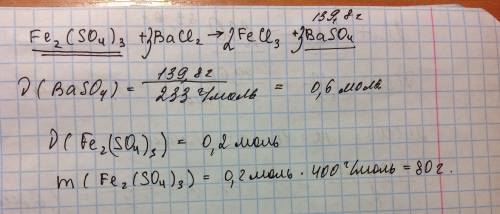 139,8г
Fe₂(SO₄)₃ + 3BaCl₂ → 2FeCl₃ + 3BaSO₄
ν(BaSO₄) = 139,8г / 233 г/моль = 0,6 моль
ν(Fe₂(SO₄)₃) = 0,2 моль
m(Fe₂(SO₄)₃) = 0,2 моль · 400 г/моль = 80 г.